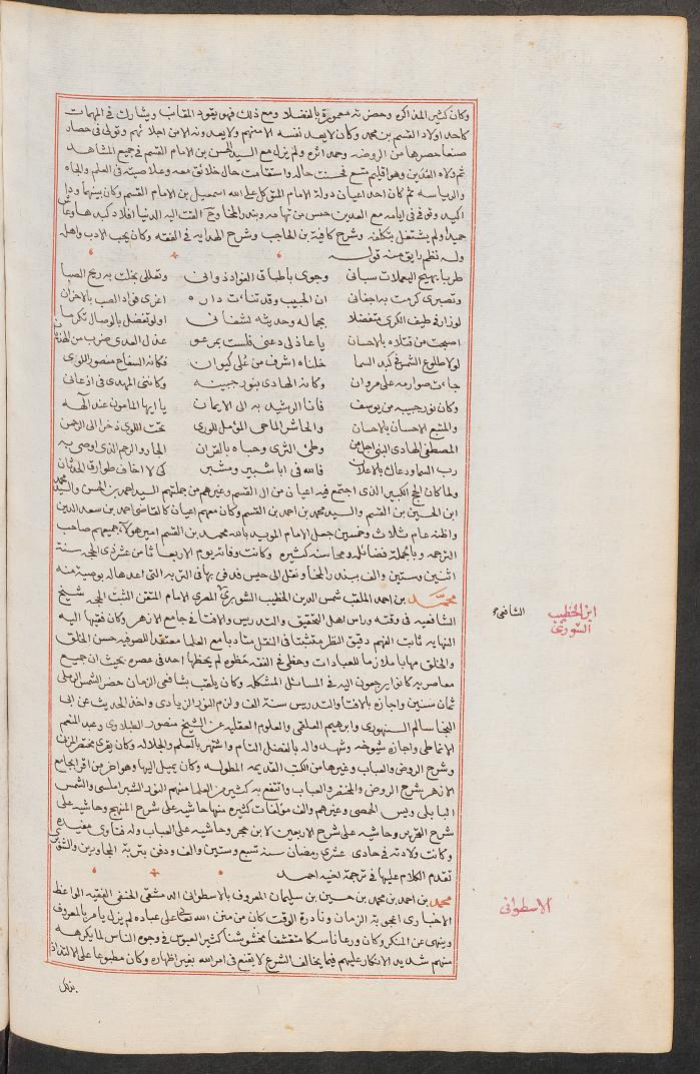 وكان كثير المذاكره وحضرته معمورة بالفضلا ومع ذلك فهو يقود المقانب ويشارك في المهمات
كاحد اولاد القسم بن محمد وكان لا يعد نفسه الا منهم ولا يعدونه الا من اجلائهم وتولى في حصار
صنعا حصرها من الروضه وحمد اثره ولم يزل مع السيد الحسن بن الامام القسم في جميع المشاهد
ثم ولاه العدين وهو اقليم متسع فحسنت حاله واستقامت حال خلائق معه وعلا صيته في العلم والجاه
والرياسه ثم كان احد اعيان دولة الامام المتوكل على الله اسمعيل بن الامام القسم وكان بينهما وداد
اكيد وتوفي في ايامه مع العدين حيس من تهامه وبندر المخا وح القت اليه الدنيا افلاذ كبدها وعاش
حميدا ولم يشتغل بتكلفه وشرح كافية بن الحاجب وشرح الهدايه في الفقه وكان يحب الادب واهله
وله نظم رايق منه قوله
طربا بهيج اليعملات سباني وجوى باطباق الفواد ذواني وتعللي بجلت به ريح الصبا
وتصبري كرمت به اجفاني ان الحبيب وقد تناءت داره اغرى فواد الصب بالاحزان
لو زار في طيف الكرى متفضلا بجماله وحديثه لشفاني او لو تفضل بالوصال تكرما
اصبحت من قتلاه بالاحسان يا عاذلي دعني فلست بمرعو عذل العدى ضرب من الهذيان
لولا طلوع الشمس في كبد السما خلناه اشرف من على كيوان فكانه السفاح منصور اللوى
جاءت صوارمه على مروان وكانه الهادي بنور جبينه وكانني المهدي في اذعاني
وكان نور جبينه من يوسف فانا الرشيد به الى الايمان يا ايها المامون عند الهه
والمتبع الاحسان بالاحسان والحاشر الماحي المؤمل للورى تحت اللوى ذخرا الى الرحمن
المصطفى الهادي النبي اجل من وطئ الثرى وحباه بالقران الجار والرحم الذي اوصى به
رب السما ودعاك بالاعلان فالله في ابا شبير وشبر كي لا اخاف طوارق الحدثان
ولما كان الحج الكبير الذي اجتمع فيه اعيان من ال القسم وغيرهم من جملتهم السيد احمد بن الحسن والسيد محمد
ابن الحسين بن القسم والسيد محمد بن احمد بن القسم وكان معهم اعيان كالقاضي احمد بن سعد الدين
واظنه عام ثلاث وخمسين جعل الامام المويد بالله محمد بن القسم امير هولاء جميعهم صاحب
الترجمه وبالجملة فضائله ومحاسنه كثيره وكانت وفاته يوم الاربعا ثامن عشر ذي الحجه سنة
اثنين وستين والف ببندر المخا ونقل الى حيس فدفن بها في التربه التي اعدها له بوصية منه
محمد بن احمد الملقب شمس الدين الخطيب الشوبري المصري الامام المتقن الثبت الحجه شيخ
الشافعيه في وقته وراس اهل التحقيق والتدريس والافتا في جامع الازهر وكان فقيها اليه
النهايه ثابت الفهم دقيق النظر متثبتا في النقل متادبا مع العلما معتقدا للصوفيه حسن الخلق
والخلق مهابا ملازما للعبادات وحظي في الفقه حظوه لم يحظها احد في عصره بحيث ان جميع
معاصريه كانوا يرجعون اليه في المسائل المشكله وكان يلقب بشافعي الزمان حضر الشمس الرملي
ثمان سنين واجازه بالافتا والتدريس سنة الف ولزم النور الزيادي واخذ الحديث عن ابي
النجا سالم السنهوري وابرهيم العلقمي والعلوم العقليه عن الشيخ منصور الطبلاوي وعبد المنعم
الانماطي واجازه شيوخه وشهدوا له بالفضل التام واشتهر بالعلم والجلاله وكان يقرئ مختصر المزني
وشرح الروض والعباب وغيرها من الكتب القديمه المطوله وكان يميل اليها وهو اخر من اقرا بجامع
الازهر شرح الروض والمختصر والعباب وانتفع به كثير من العلما منهم النور الشبراملسي والشمس
البابلي ويس الحمصي وغيرهم والف مؤلفات كثيره منها حاشيه على شرح المنهج وحاشيه على
شرح التحرير وحاشيه على شرح الاربعين لابن حجر وحاشيه على العباب وله فتاوى مفيده
وكانت ولادته في حادي عشري رمضان سنه تسع وستين والف ودفن بتربة المجاورين والشوبري
تقدم الكلام عليها في ترجمة اخيه احمد
محمد بن احمد بن محمد بن حسين بن سليمان المعروف بالاسطواني الدمشقي الحنفي الفقيه الواعظ
الاخباري اعجوبة الزمان ونادرة الوقت كان من منن الله تعالى على عباده لم يزل يامر بالمعروف
وينهى عن المنكر وكان ورعا ناسكا متقشفا مخشوشنا كثير العبوس في وجوه الناس لما يكرهه
منهم شديد الانكار عليهم فيما يخالف الشرع لا يقنع في امر الله بغير اظهاره وكان مطبوعا على الالتذاذ
بذلك
ابن الخطيب الشافعي
الشوبري
الاسطواني